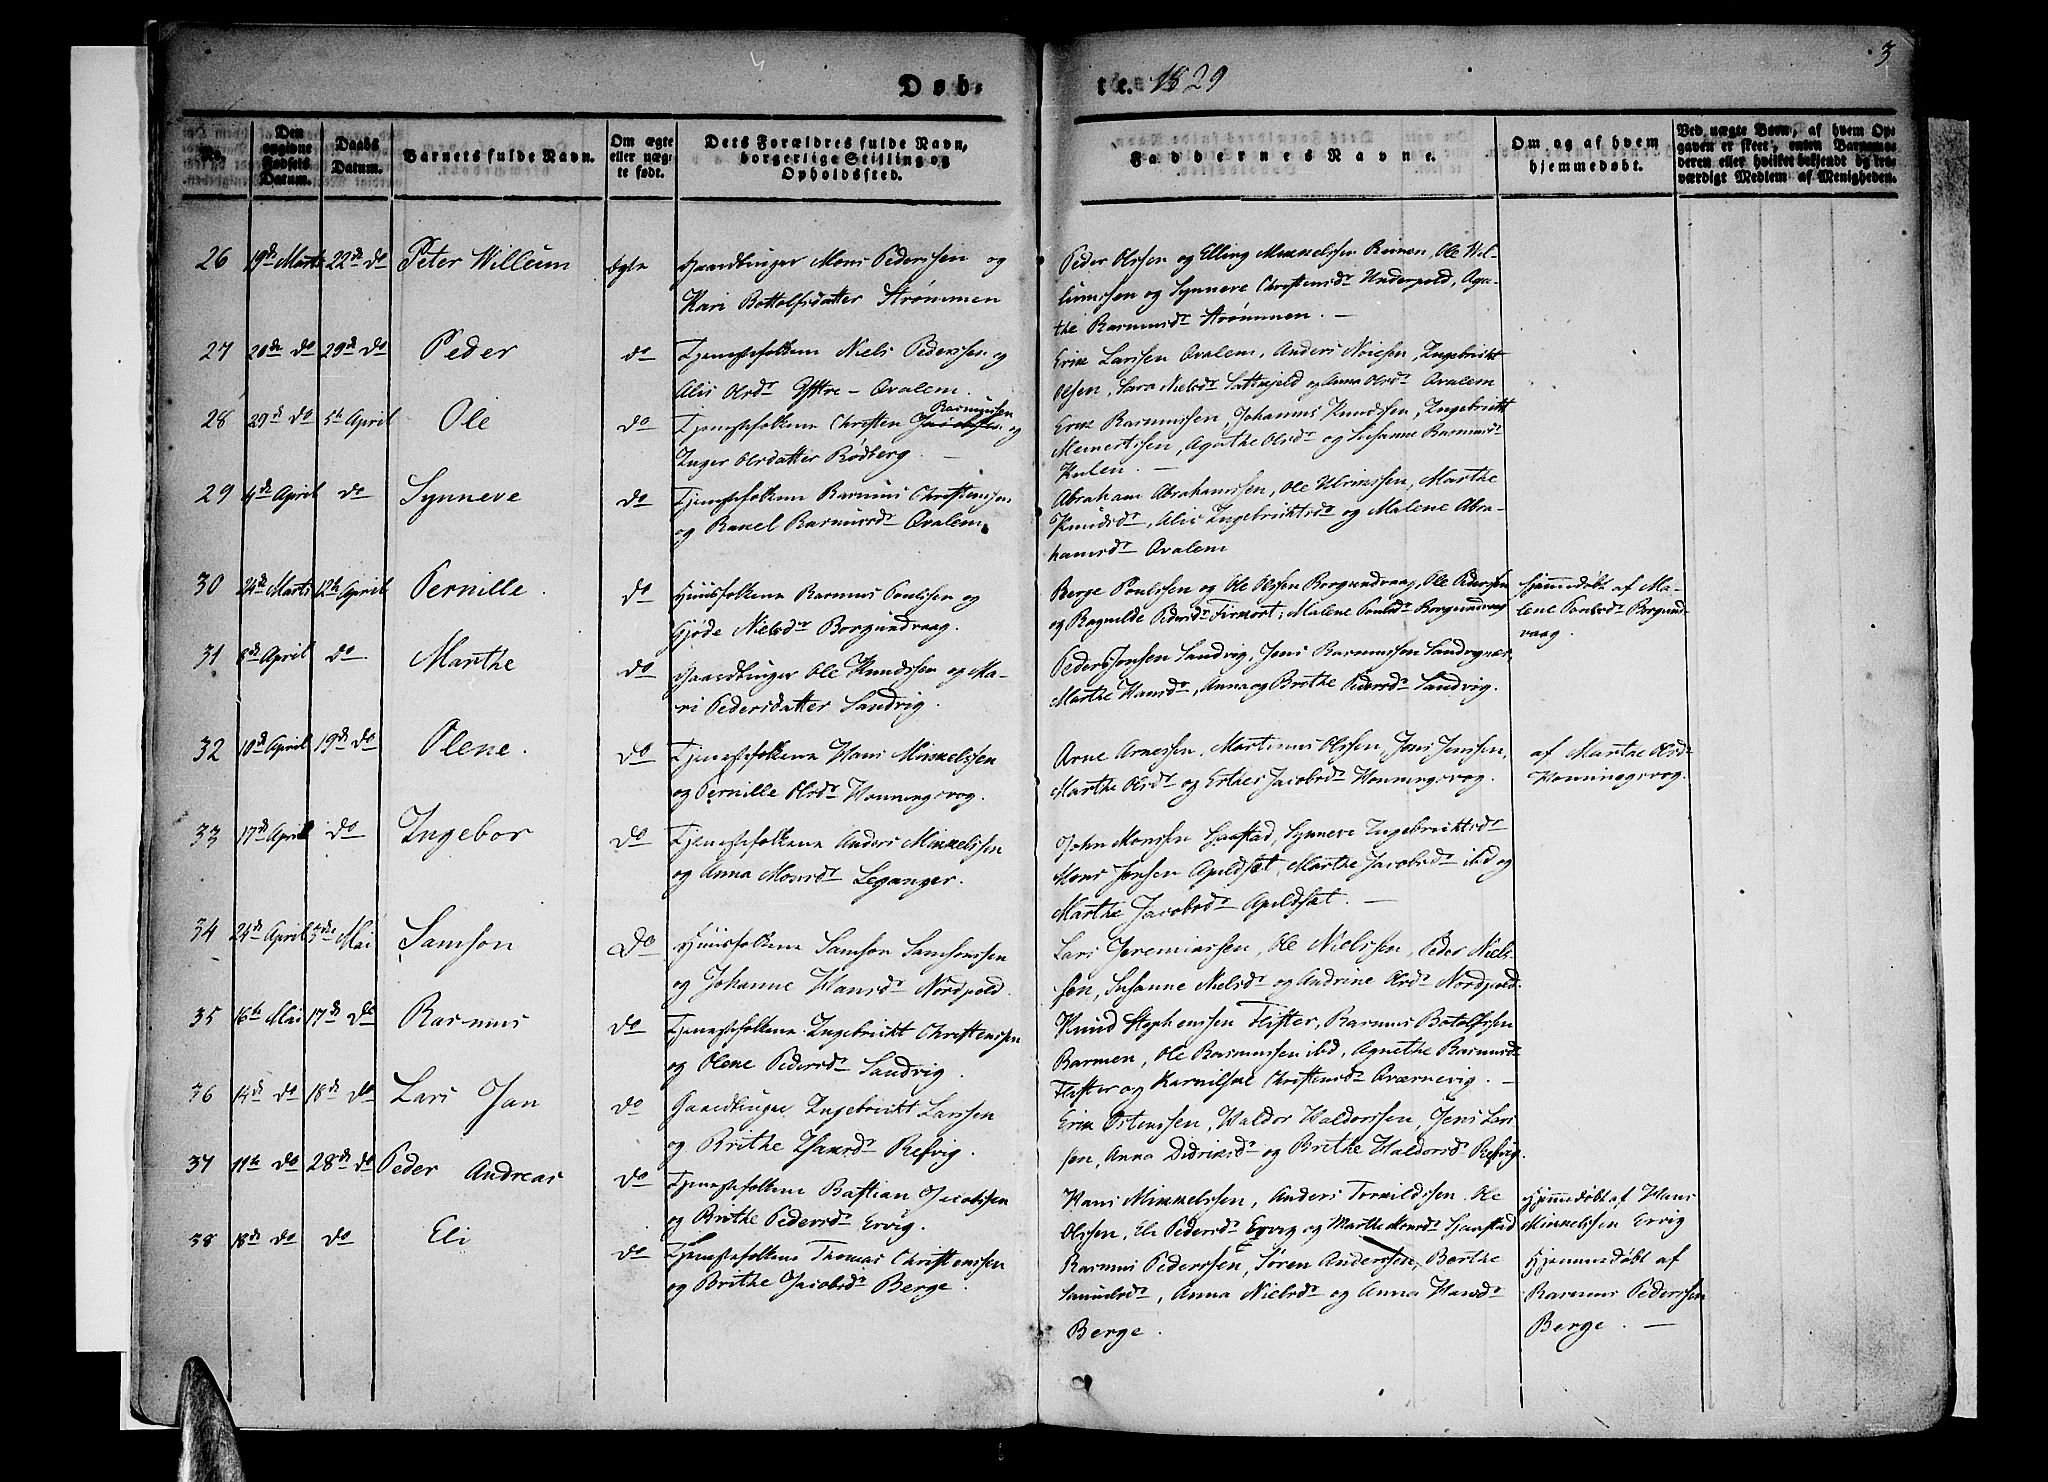 3
Døb- te. 1829
No.
Den opgivne Fødsels Datum.
Daabs Datum.
Barnets fulde Navn.
Om ægte eller uægte født.
Dets Forældres fulde Navn, borgerlige Stilling og Opholdssted.
Faddernes Navne.
Om og af hvem hjemmedøbt.
Ved uægte Børn, af hvem Opgaven er skeet, enten Barnemoderen eller hvilket bekjendt og troværdigt Medlem af Menigheden.
26 19de Marts 22de do Peter Willum ægte Gaardbruger Mons Pederssen og
Kari Bottolfsdatter Strømmen
Peder Olssen og Elling Mikkelssen Rimen, Ole Wil-
lumssen og Synneve Christensdr Underpold, Aga-
the Rasmusdr Strømmen. —
27 20de do 29de do Peder do Tjenestefolkene Niels Pederssen og
Alis Olsdr Yttre - Qvalem.
Erik Larssen Qvalem, Anders Nielsen, Ingebricht
Olsen, Sara Nielsdr Sattrefjeld og Anna Olsdr Qvalem
28 29de do 5te April Ole do Tjenestefolkene Christen Rasmussen og
Inger Olsdatter Rødberg. —
Erik Rasmussen, Johannes Knudssen, Ingebricht
Meinertssen, Agathe Olsdr og Susanne Rasmusdr
Kulen. —
29 4de April do Synneve do Tjenestefolkene Rasmus Christenssen
og Rakel Rasmusdr Qvalem.
Abraham Abrahamssen, Ole Ulrikssen, Marthe
Knudsdr, Alis Ingebrichtsdr og Malene Abra-
hamsdr Qvalem
30 24de Marts 12te April Pernille. do Huusfolkene Rasmus Poulssen og
Gjøde Nielsdr Borgundvaag.
Berge Poulssen og Ole Olssen Borgundvaag, Ole Pederssen
og Ragnilde Pedersdr Firmort; Malene Poulsdr Borgundvaag
hjemmedøbt af Ma-
lene Poulsdr Borgund-
vaag.
31 8de April do Marthe do Gaardbruger Ole Knudssen og Ma-
ri Pedersdatter Sandvig.
Peder Jonsen Sandvig, Jens Rasmussen Sandvignæs,
Marthe Hansdr, Anna og Brithe Pedersdr Sandvig.
32 10de April 19de do Olene. do Tjenestefolkene Hans Mikkelssen
og Pernille Olsdr Honningsvog.
Arne Arnessen, Martinus Olssen, Jens Jenssen,
Marthe Olsdr og Esther Jacobsdr Honningsvog.
af Marthe Olsdr
Honningsvog.
33 17de April do Ingebor do Tjenestefolkene Anders Mikkelssen
og Anna Monsdr Leganger.
John Monssen Haastad, Synneve Ingebrichtsdr
Mons Jensen Apuldsæt, Marthe Jacobsdr ibd og
Marthe Jacobsdr Apuldsæt. —
34 24de April 3die Mai Samson do Huusfolkene Samson Samsonssen
og Johanne Hansdr Nordpold.
Lars Jeremiassen, Ole Nielssen, Peder Niels-
sen, Susanne Nielsdr og Andrine Olsdr Nordpold.
35 16te Mai 17de do Rasmus do Tjenestefolkene Ingebricht Christenssen
og Olene Pedersdr Sandvig.
Knud Stephenssen Flister, Rasmus Botolfssen
Barmen, Ole Rasmussen ibd, Agnethe Rasmusdr
Flister og Karnilsine Christensdr Qværnevig. —
36 14de do 18de do Lars Jan do Gaardbruger Ingebricht Larssen
og Brithe Jhansdr Refvig.
Erik Ostenssen, Haldor Haldorssen, Jens Lars-
sen, Anna Didriksdr og Brithe Haldorsdr Refvig.
37 11te do 28de do Peder Andreas do Tjenestefolkene Bastian Jacobssen
og Brithe Pedersdr Ervig.
Hans Mikkelssen, Anders Torkildssen, Ole
Olssen, Eli Pedersdr Ervig og Marthe Monsdr Haastad
hjemmedøbt af Hans
Mikkelssen Ervig
38 18de do do Eli do Tjenestefolkene Thomas Christenssen
og Brithe Jacobsdr Berge.
Rasmus Pederssen, Søren Anderssen, Berthe
Samuelsdr, Anna Nielsdr og Anna Hansdr
Berge.
Hjemmedøbt af
Rasmus Pederssen
Berge. —